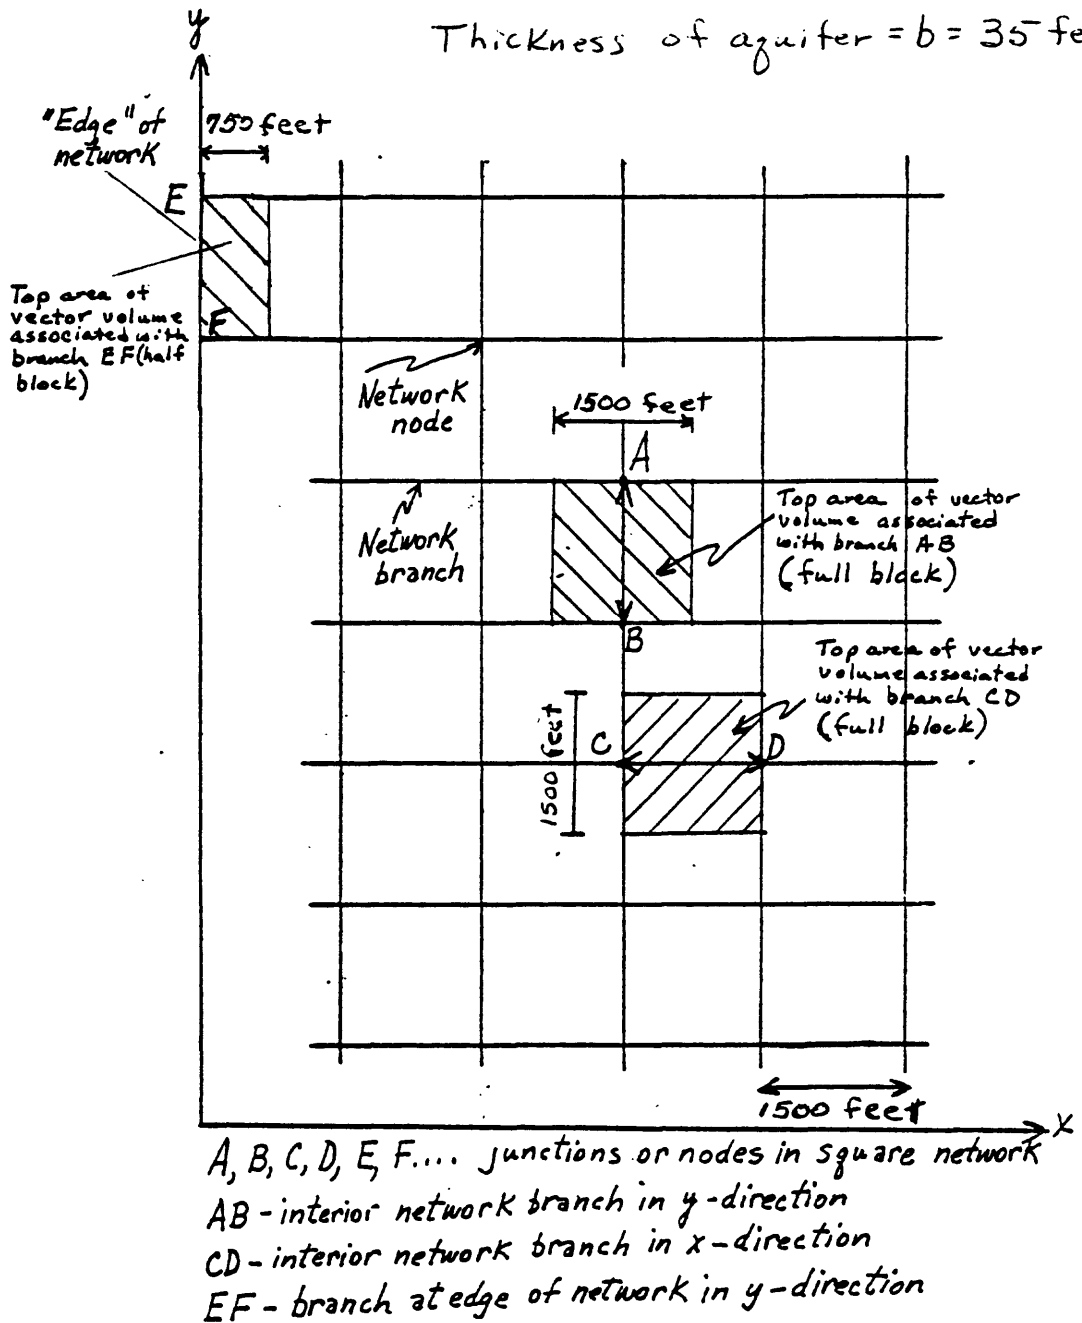 y
Thickness of aquifer = b = 35 fe
"Edge" of
network
750 feet
E
Top area of
vector volume
associated with
branch EF (half
block)
F
Network
node
1500 feet
A
Network
branch
Top area of vector
volume associated
with branch AB
(full block)
B
Top area of vector
volume associated
with branch CD
(full block)
C
D
1500 feet
1500 feet
x
A, B, C, D, E, F.... junctions or nodes in square network
AB - interior network branch in y-direction
CD - interior network branch in x-direction
EF - branch at edge of network in y-direction